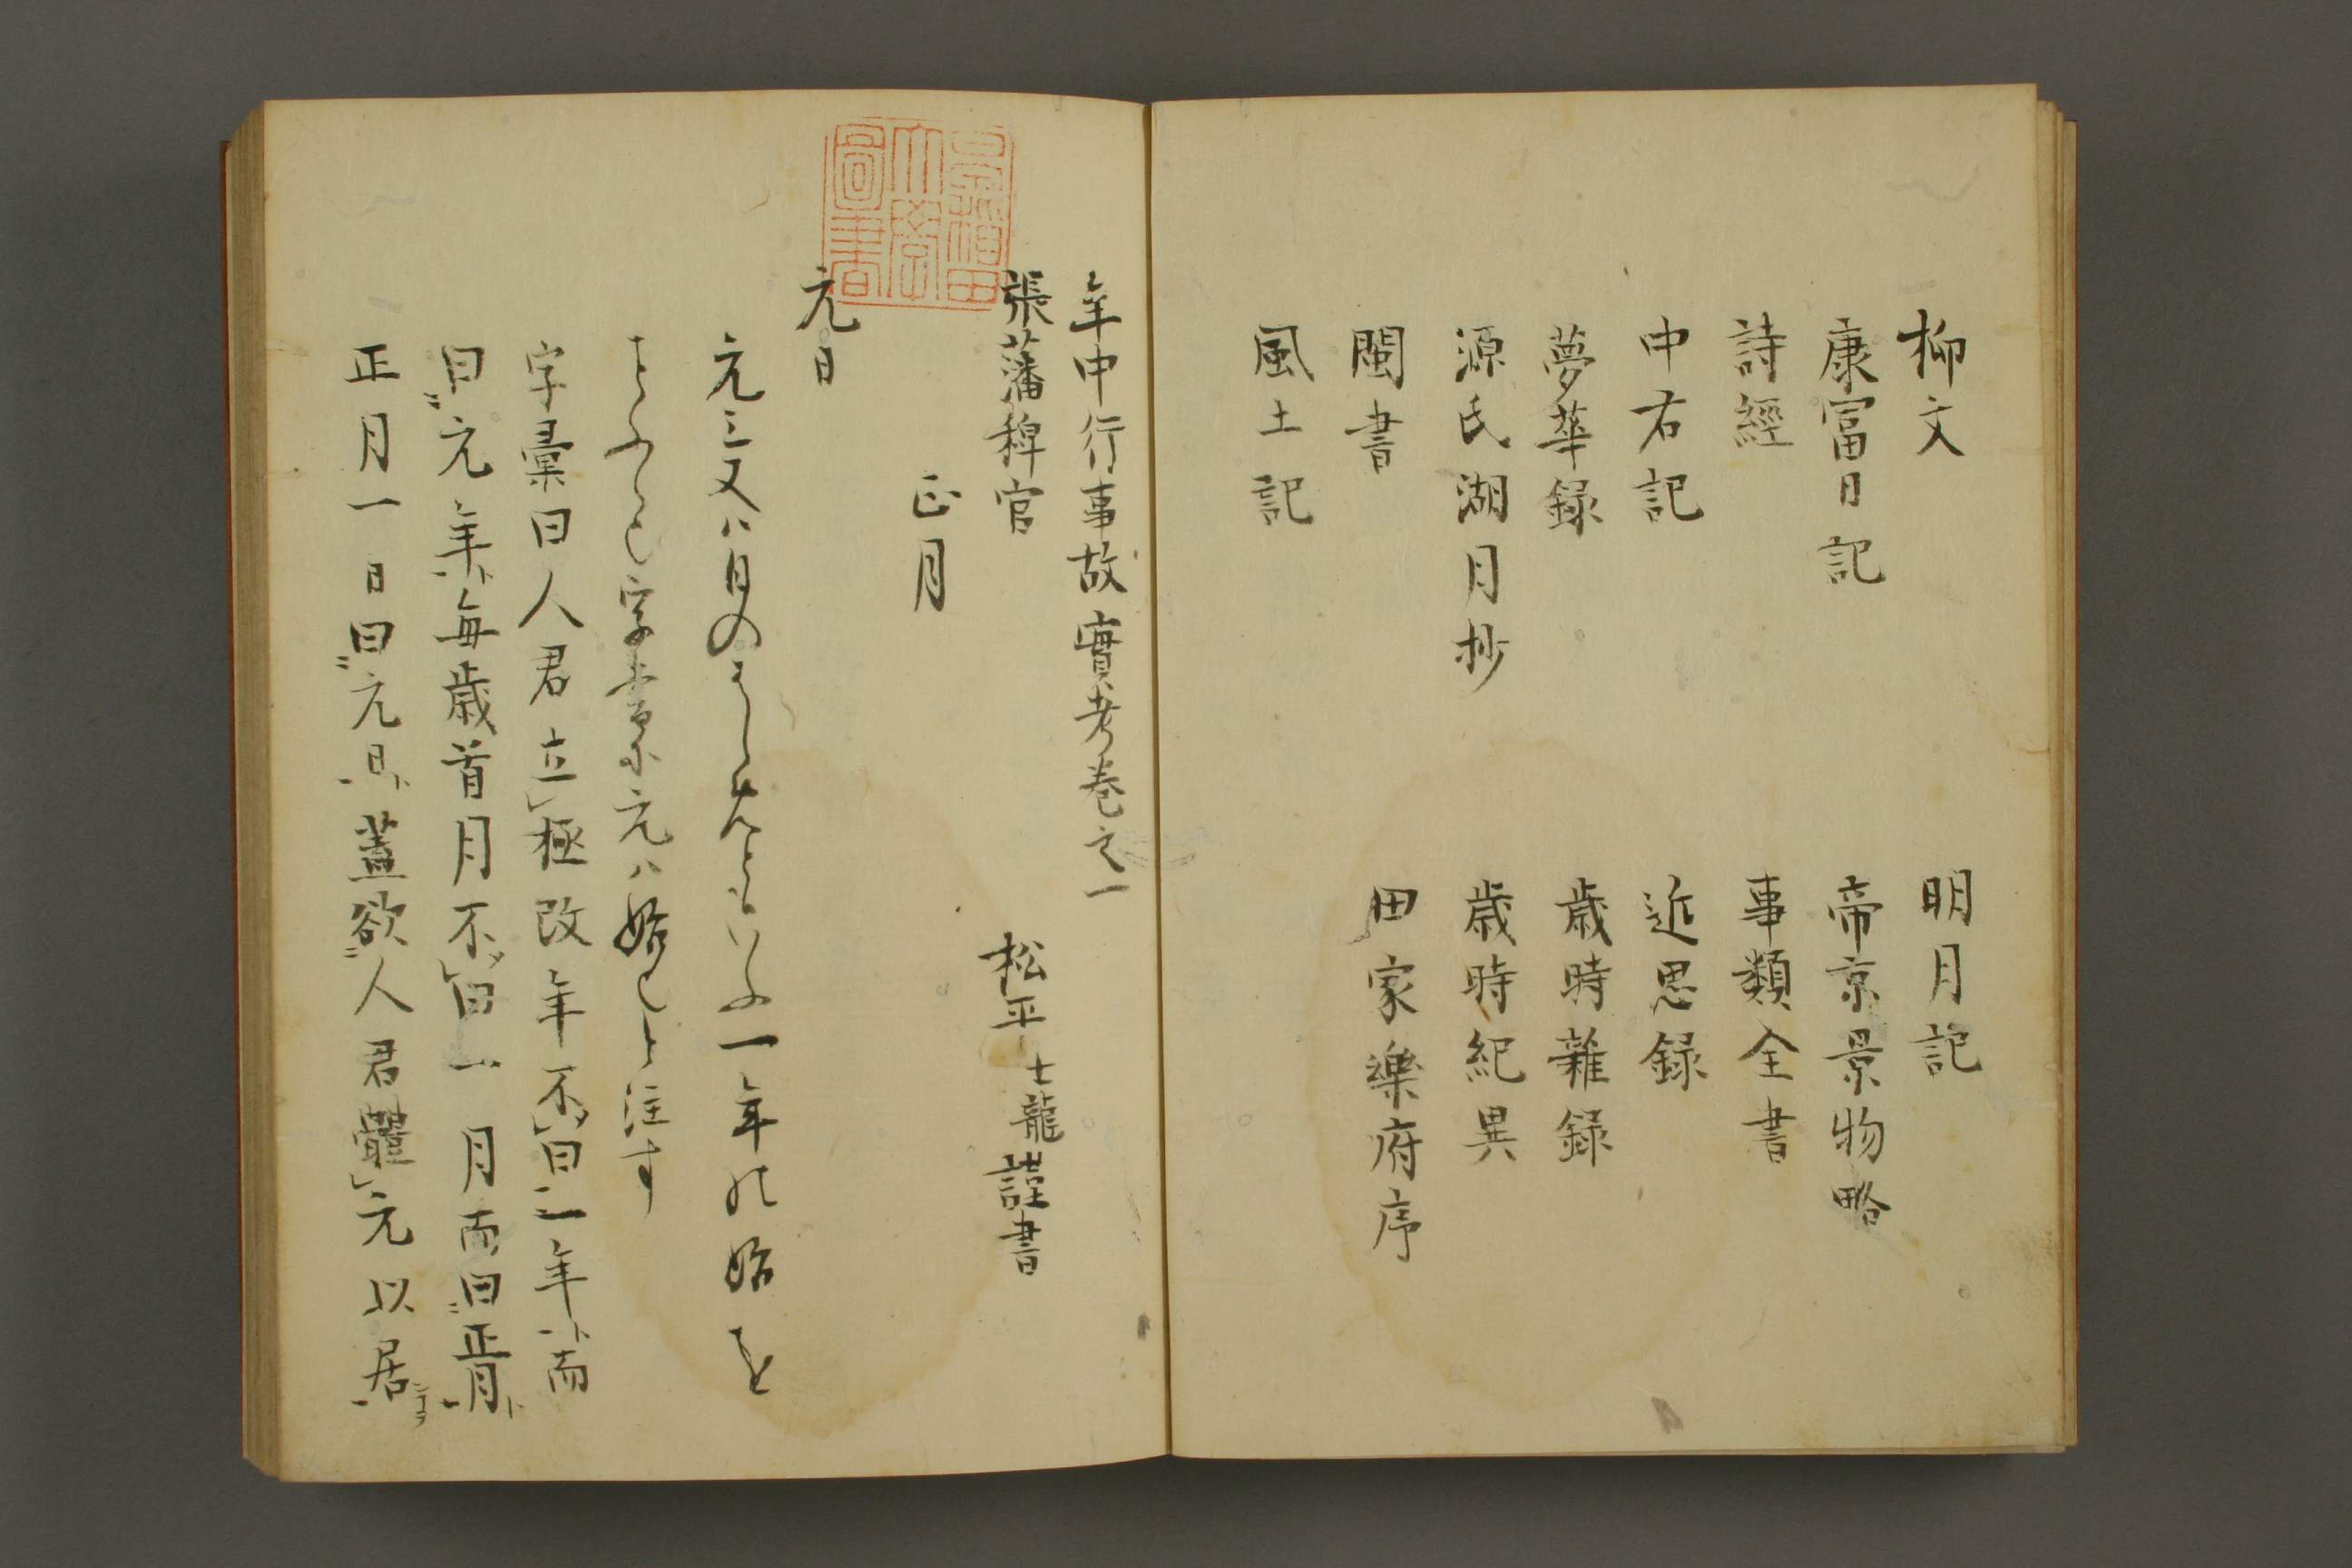 柳文
康冨日記
詩經
中右記
夢華録
源氏湖月抄
閩書
風土記
明月記
帝京景物略
事類全書
近思録
歳時雜録
歳時紀異
田家樂府序
年中行事故實考巻之一
張藩稗官 松平士龍謹書
正月
元日
元三又ハ日のはしめともいふ一年の始を
いふ也字彙元ハ始也と注す
字彙曰人君立極改年不曰一年而
曰元年毎歳首月不曰一月而曰正月
正月一日曰元日蓋欲人君體元以居
早稲田大學圖書